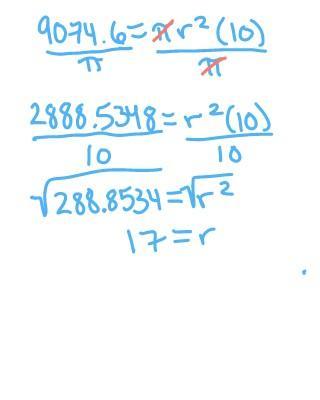 9074.6 = π r² (10)
π π
2888.5348 = r² (10)
10 10
√288.8534 = √r²
17 = r